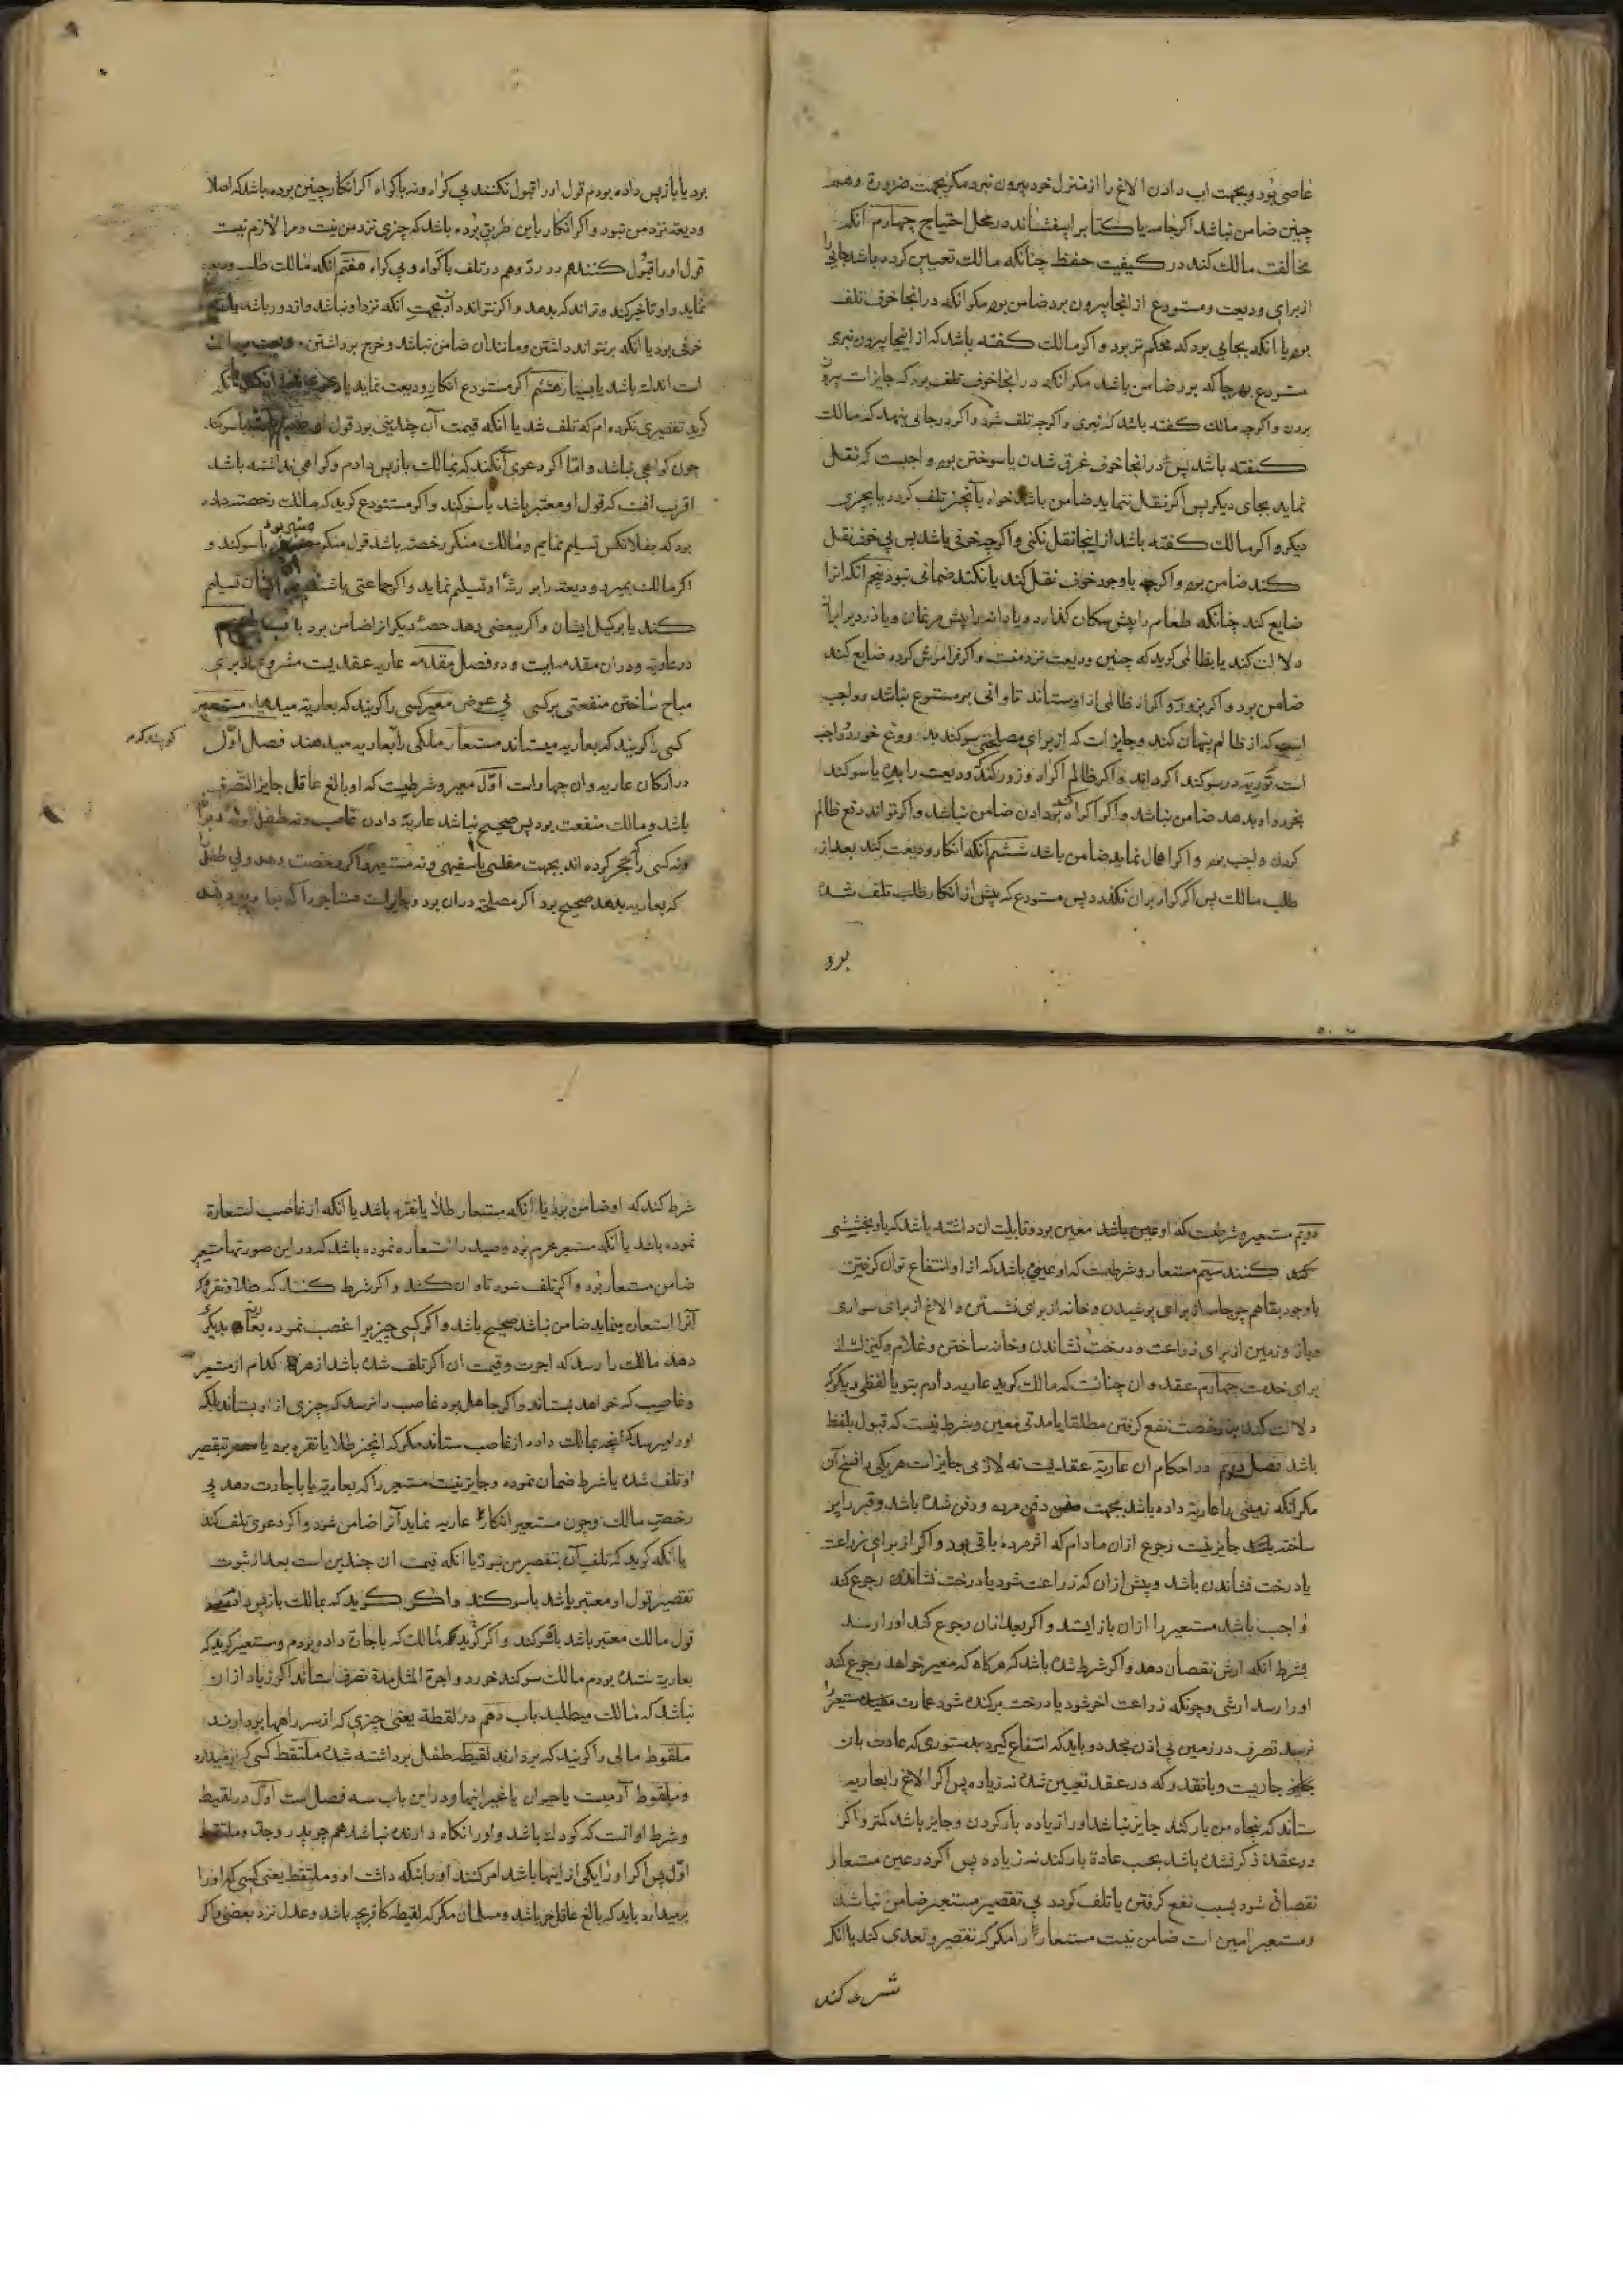 عاصی بود و بجهت اب دادن الاغ را از منزل خود بیرون نبرد مکر بجهت ضرورة وهم
چنین ضامن نباشد اکر جامه یا کتاب را بیفشاند در محل احتیاج چهارم آنکه
مخالفت مالک کند در کیفیت حفظ چنانکه مالک تعیین کرده باشد جایی را
از برای ودیعت ومستودع از انجا بیرون برد ضامن بود مکر انکه در انجا خوف تلف
بود یا انکه بجایی برد که محکم تر بود و اکر مالک کفته باشد که از اینجا بیرون نبری
مستودع بهر جا که برد ضامن باشد مکر آنکه در انجا خوف تلف بود که جایز است بیرون
بردن و اکرچه مالک کفته باشد که نبری و اکرچه تلف شود و اکر در جایی بنهد که مالک
کفته باشد پس در انجا خوف غرق شدن یا سوختن بود واجبست که نقل
نماید بجای دیکر پس اکر نقل ننماید ضامن باشد خواه بآنچیز تلف کردد یا بچیزی
دیکر و اکر مالک کفته باشد از اینجا نقل نکنی و اکرچه خوفی باشد پس بی خوف نقل
کند ضامن بود و اکرچه باوجود خوف نقل کند یا نکند ضمانی نبود پنجم آنکه انرا
ضایع کند چنانکه طعام را پیش سکان کذارد و یا دانه را پیش مرغان و یا دزد را بر ان
دلالت کند یا بظالمی کوید که چنین ودیعت نزد منست و اکر فراموش کرده ضایع کند
ضامن بود و اکر بزور و اکراه ظالمی از او بستاند تاوانی بر مستودع نباشد و واجب
است که از ظالم پنهان کند و جایز است که از برای مصلحتی سوکند بدروغ خورد و واجب
است توریه در سوکند اکر داند و اکر ظالم اکراه و زور کند که ودیعت را بده یا سوکند
بخور و او بدهد ضامن نباشد و اکر اکراه کند بدادن ضامن نباشد و اکر تواند دفع ظالم
کردن واجب بود و اکر اهمال نماید ضامن باشد ششم آنکه انکار ودیعت کند بعد از
طلب مالک پس اکر کواه بران بکذرد پس مستودع کوید که پیش از انکار طلب تلف شده
برد
برد یا باز پس داده بودم قول او را قبول نکنند بی کواه و نه باکواه اکر انکار چنین بوده باشد که اصلا
ودیعه نزد من نبود و اکر انکار باین طریق بوده باشد که چیزی نزد من نیست و مرا لازم نیست
قول او را قبول کنند هم در رد و هم در تلف با کواه و بی کواه هفتم انکه مالک طلب ودیعه
نماید و او تاخیر کند و تواند که بدهد و اکر نتواند دادن بجهت آنکه نزد او نباشد و از دور باشد یا
خوفی بود یا انکه بر نتواند داشتن و مانند ان ضامن نباشد و خرج برداشتن
است اندک باشد یا بسیار هشتم اکر مستودع انکار ودیعت نماید یا
کوید تقصیری نکرده ام که تلف شد یا آنکه قیمت آن چندینی بود قول او با سوکند
چون کواهی نباشد و امّا اکر دعوی آنکند که بمالک باز پس دادم و کواهی نداشته باشد
اقرب انست که قول او معتبر باشد با سوکند و اکر مستودع کوید که مالک رخصت داده
بود که بفلانکس تسلیم نمایم و مالک منکر رخصت باشد قول منکر معتبر بود با سوکند و
اکر مالک بمیرد ودیعه را بورثه او تسلیم نماید و اکر جماعتی باشند بایشان تسلیم
کند یا بوکیل ایشان و اکر ببعضی دهد حصه دیکر از را ضامن بود باب نهم
در عاریه و دران مقدمه ایست و دو فصل مقدمه عاریه عقدیست مشروع از برای
مباح ساختن منفعتی بر کسی بی عوض معیر کسی را کویند که بعاریه میدهد مستعیر
کسی را کویند که بعاریه میستاند مستعار ملکی را بعاریه میدهند فصل اوّل
کویند که در
در ارکان عاریه و ان چهار است اوّل معیر و شرطست که او بالغ عاقل جایز التصرف
باشد و مالک منفعت بود پس صحیح نباشد عاریة دادن غاصب و نه طفل و نه دیوانه
و نه کسی را که حجر کرده اند بجهت مفلسی یا سفیهی و نه مستعیر و اکر رخصت دهد ولی طفل را
که بعاریه بدهد صحیح بود اکر مصلحة دران بود و جایز است مستاجر را که بعاریه بدهد
دویم مستعیر و شرطست که او معین بود و قابلیت ان داشته باشد که باو بخششی
کنند سیم مستعار و شرطست که او عینی باشد که از او انتفاع توان کرفتن
باوجود بقا هم چو جامه از برای پوشیدن و خانه از برای نشستن و الاغ از برای سواری
و بار و زمین از برای زراعت و درخت نشاندن و خانه ساختن و غلام و کنیزک از
برای خدمت چهارم عقد و ان چنانست که مالک کوید عاریه دادم بتو یا لفظی دیکر که
دلالت کند بر رخصت نفع کرفتن مطلقا یا مدتی معین و شرط نیست که قبول بلفظ
باشد فصل دویم در احکام ان عاریة عقدیست نه لازمی جایز است هر یکی را فسخ آن
مکر انکه زمینی را عاریة داده باشد بجهت دفن مرده و دفن شده باشد و قبر را پر
ساخته باشد جایز نیست رجوع ازان مادام که اثر مرده باقی بود و اکر از برای زراعت
یا درخت نشاندن باشد و پیش از ان که زراعت شود یا درخت نشاندن رجوع کند
واجب باشد مستعیر را ازان باز ایستد و اکر بعد از ان رجوع کند او را رسد
بشرط انکه ارش نقصان دهد و اکر شرط شده باشد که هرکاه که معیر خواهد رجوع کند
او را رسد ارشی و چونکه زراعت اخر شود یا درخت برکنده شود عمارت مستعیر را
نرسد تصرف در زمین بی اذن مجدد و باید که انتفاع کیرد بدستوری که عادت بان
جاریست و بانقدر که در عقد تعیین شده نه زیاده پس اکر الاغ را بعاریه
ستاند که پنجاه من بار کند جایز نباشد او را زیاده بار کردن و جایز باشد کمتر و اکر
در عقد ذکر نشده باشد بحسب عادة بار کند نه زیاده پس اکر در عین مستعار
نقصانی شود بسبب نفع کرفتن یا تلف کردد بی تقصیر مستعیر ضامن نباشد
و مستعیر امین است ضامن نیست مستعار را مکر که تقصیر و تعدی کند یا انکه
شرط کند
شرط کند که او ضامن بود یا انکه مستعار طلا یا نقره باشد یا انکه از غاصب استعارة
نموده باشد یا انکه مستعیر محرم بود و صید را استعاره نموده باشد که در این صورتها مستعیر
ضامن مستعار بود و اکر تلف شود تاوان کشد و اکر شرط کنند که طلا و نقره که
آنرا استعاره مینماید ضامن نباشد صحیح باشد و اکر کسی چیزی را غصب نموده بعاریه بدیکری
دهد مالک را رسد که اجرت و قیمت ان اکر تلف شده باشد از هر کدام از مستعیر
و غاصب که خواهد بستاند و اکر جاهل بود غاصب را نرسد که چیزی از او بستاند بلکه
او را میرسد که آنچه بمالک داده از غاصب ستاند مکر که انچیز طلا یا نقره بود یا بتقصیر
او تلف شده یا شرط ضمان نموده و جایز نیست مستعیر را که بعاریة یا باجارت دهد بی
رخصت مالک و چون مستعیر انکار عاریه نماید آنرا ضامن شود و اکر دعوی تلف کند
یا انکه کوید که تلف آن بتقصیر من نبود یا انکه قیمت ان چندین است بعد از ثبوت
تقصیر قول او معتبر باشد با سوکند و اکر کوید که بمالک باز پس دادم
قول مالک معتبر باشد با سوکند و اکر کوید مالک که باجاره داده بودم و مستعیر کوید که
بعاریت ستده بودم مالک سوکند خورد و اجرة المثل مدة تصرف بستاند اکر زیاد از ان
نباشد که مالک میطلبد باب دهم در لقطة یعنی چیزی که از سر راهها بردارند
ملقوط مالی را کویند که بردارند لقیطه طفل برداشته شده ملتقط کسی که برمیدارد
و ملقوط آدمیست یا حیوان یا غیر اینها و در این باب سه فصل است اوّل در لقیط
و شرط او انست که کودک باشد و او را نکاه دارنده نباشد هم چو پدر و جد و ملتقط
اوّل پس اکر او را یکی از اینها باشد امر کنند او را بنکه داشت او و ملتقط یعنی کسی که او را
برمیدارد باید که بالغ عاقل حر باشد و مسلمان مکر که لقیطه کافر بچه باشد و عدل نزد بعضی و اکر